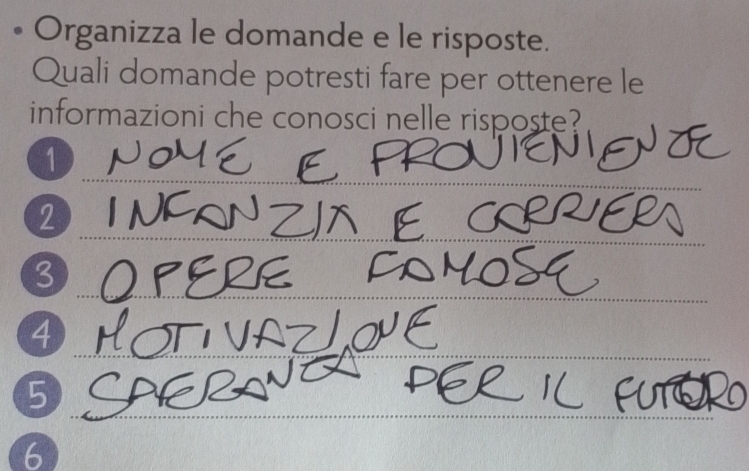 • Organizza le domande e le risposte.
Quali domande potresti fare per ottenere le
informazioni che conosci nelle risposte?
1 NOME E PROVIENIENZE
2 INFANZIA E CARRIERA
3 OPERE FAMOSE
4 MOTIVAZIONE
5 SPERANZA PER IL FUTURO
6